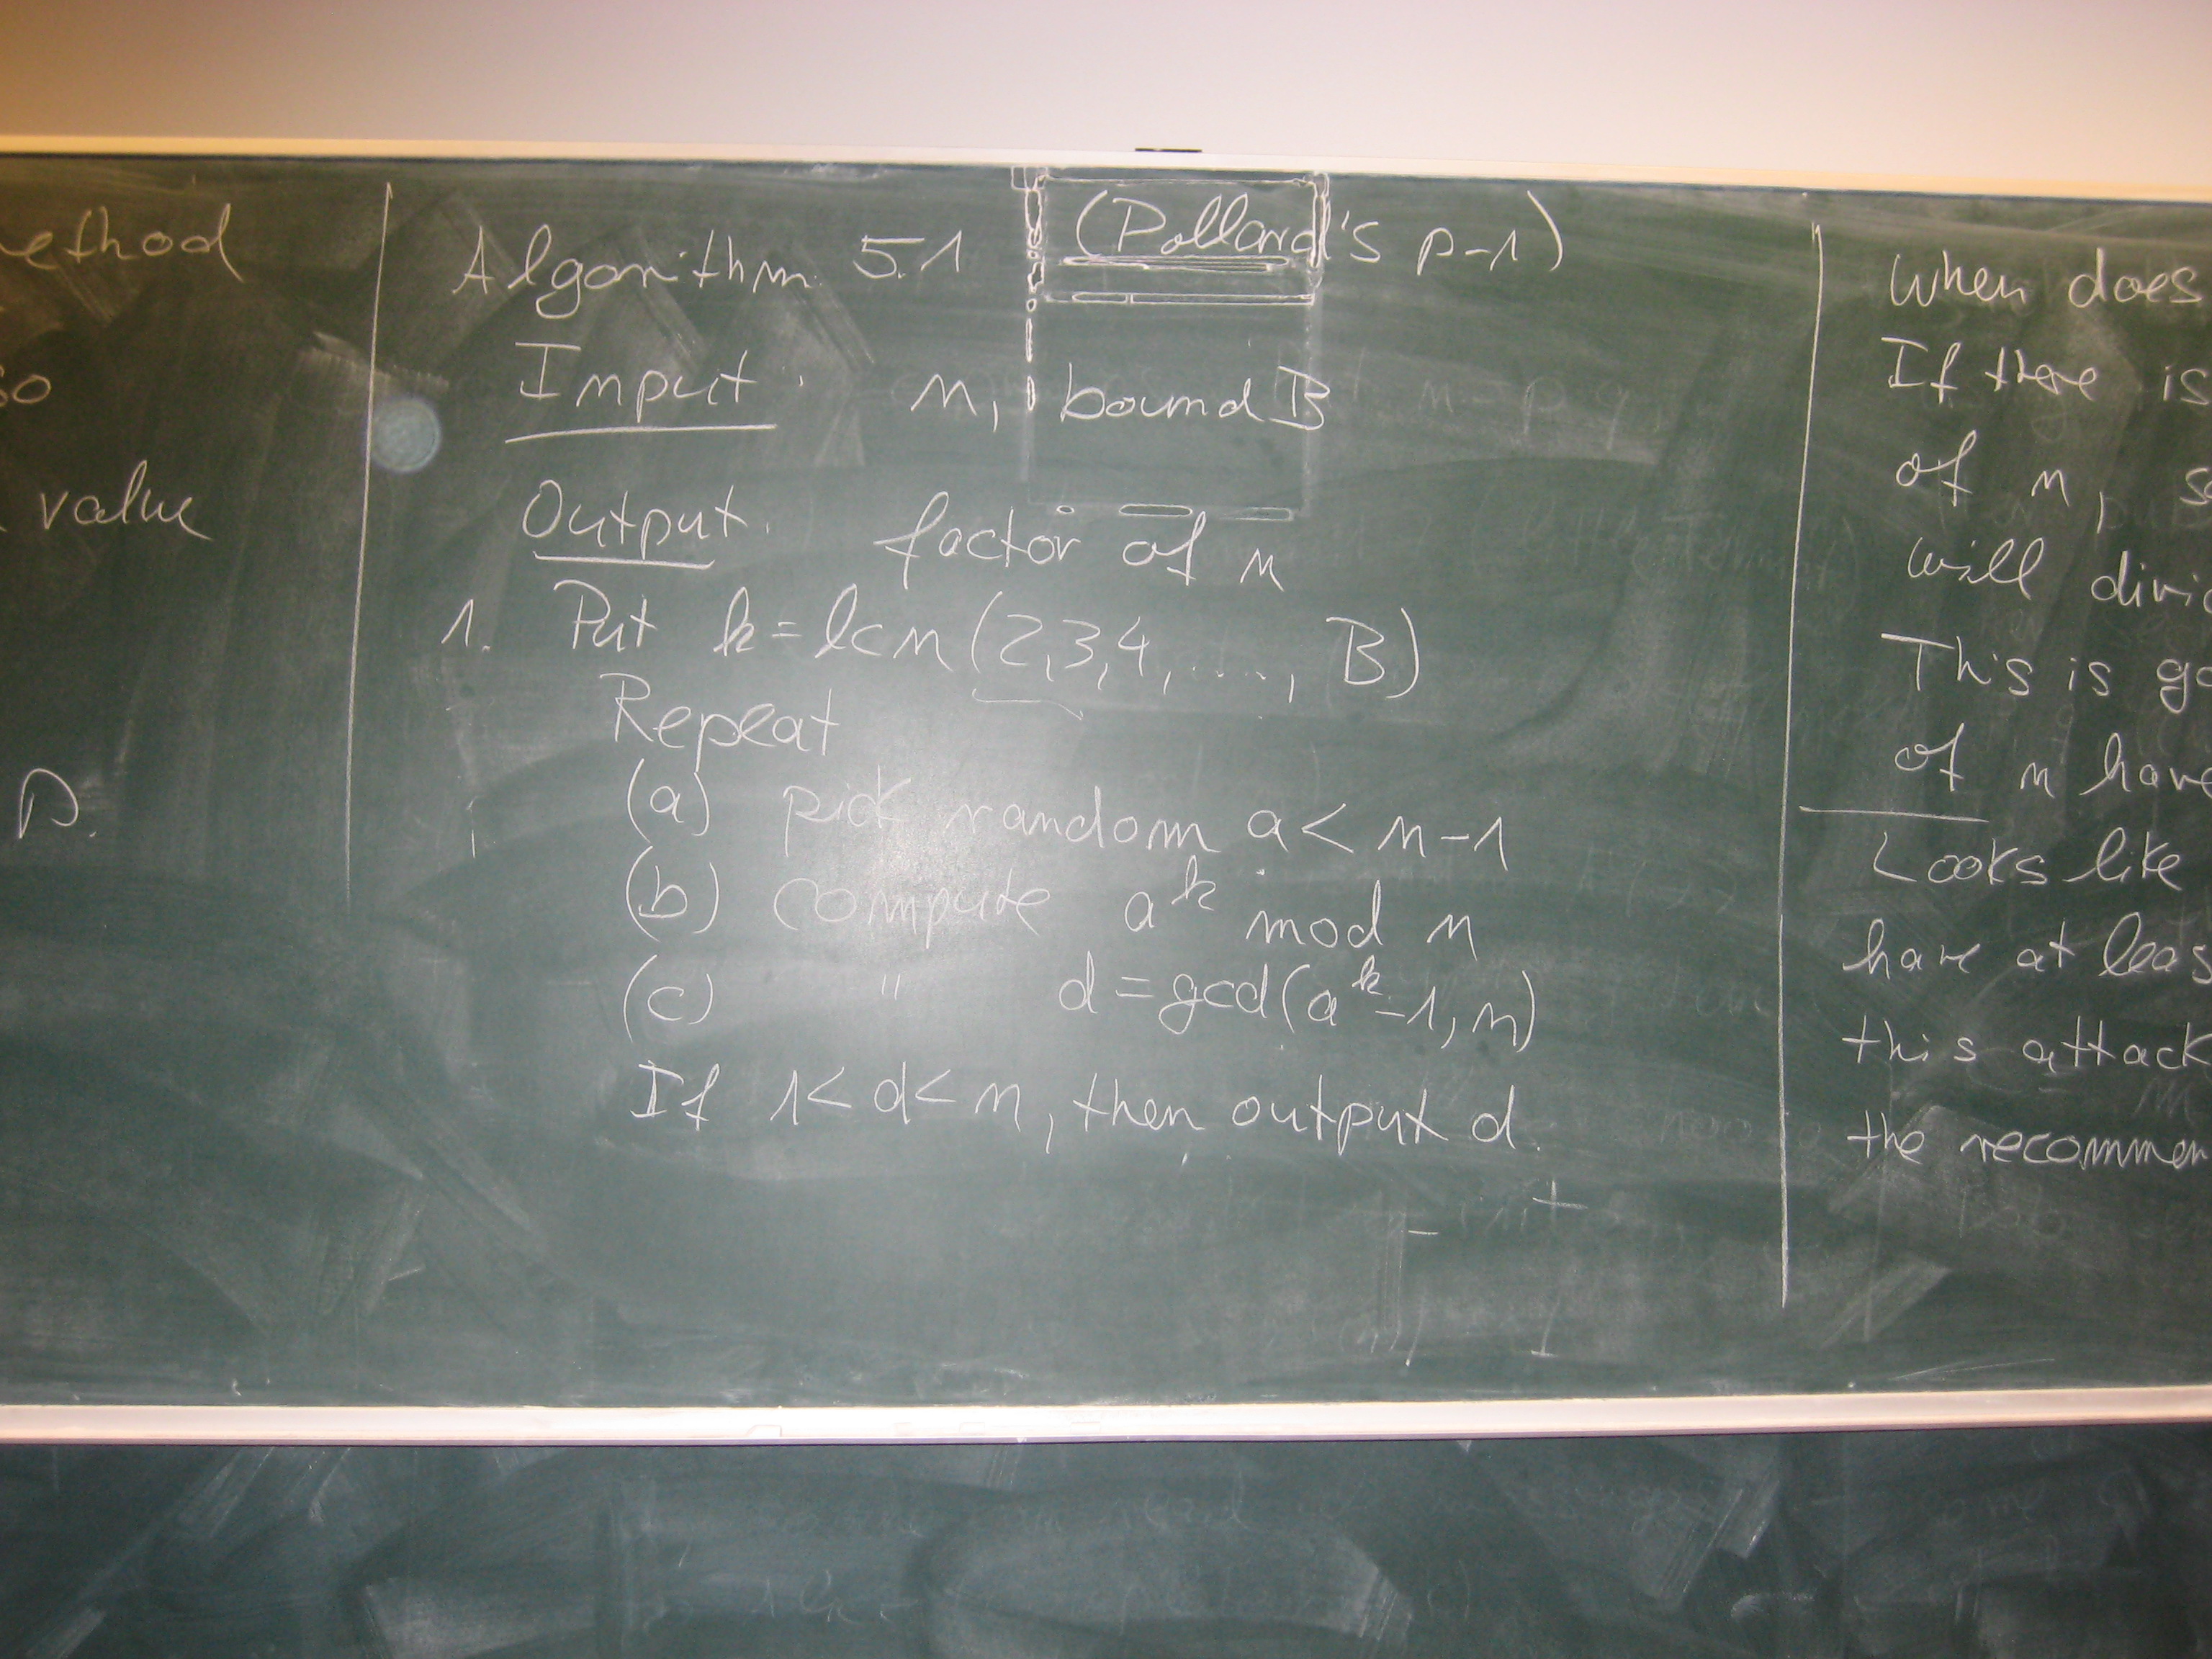 ethod
so
value
P.
Algorithm 5.1 (Pollard's p-1)
Input: n, bound B
Output: factor of n
1. Put k=lcm(2,3,4,....., B)
Repeat
(a) pick random a<n-1
(b) compute a^k mod n
(c) " d=gcd(a^k-1,n)
If 1<d<n, then output d.
When does
If there is
of n, s
will divi
This is go
of n have
Looks like
have at leas
this attack
the recommen